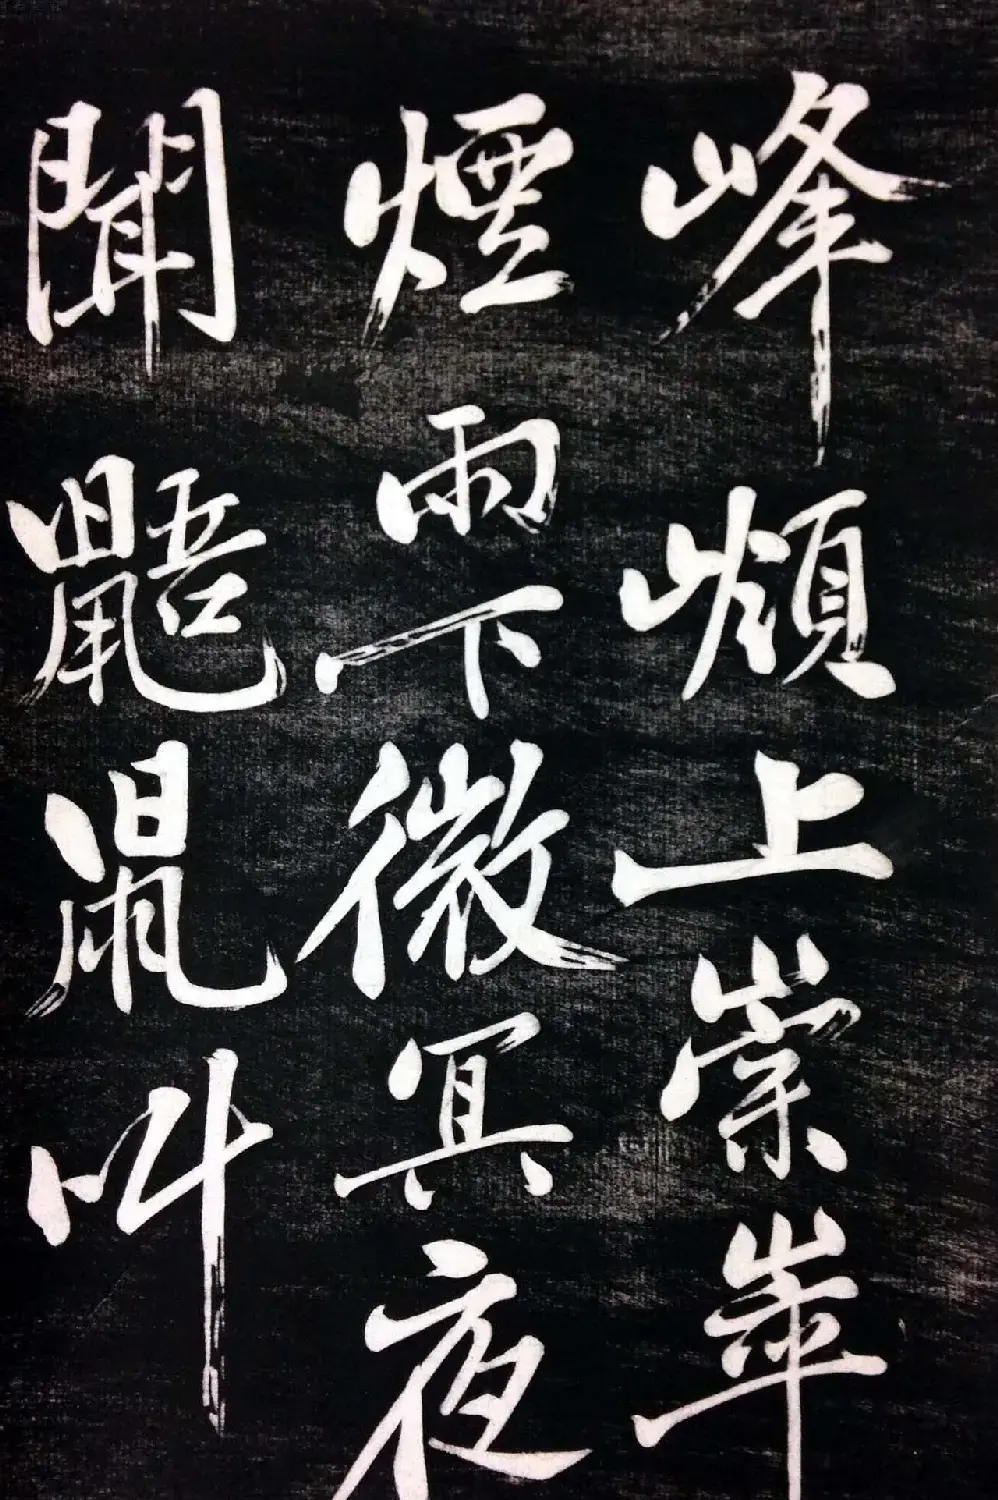 峰上崇崒
煙雨下微冥夜
聞鼯鼠叫